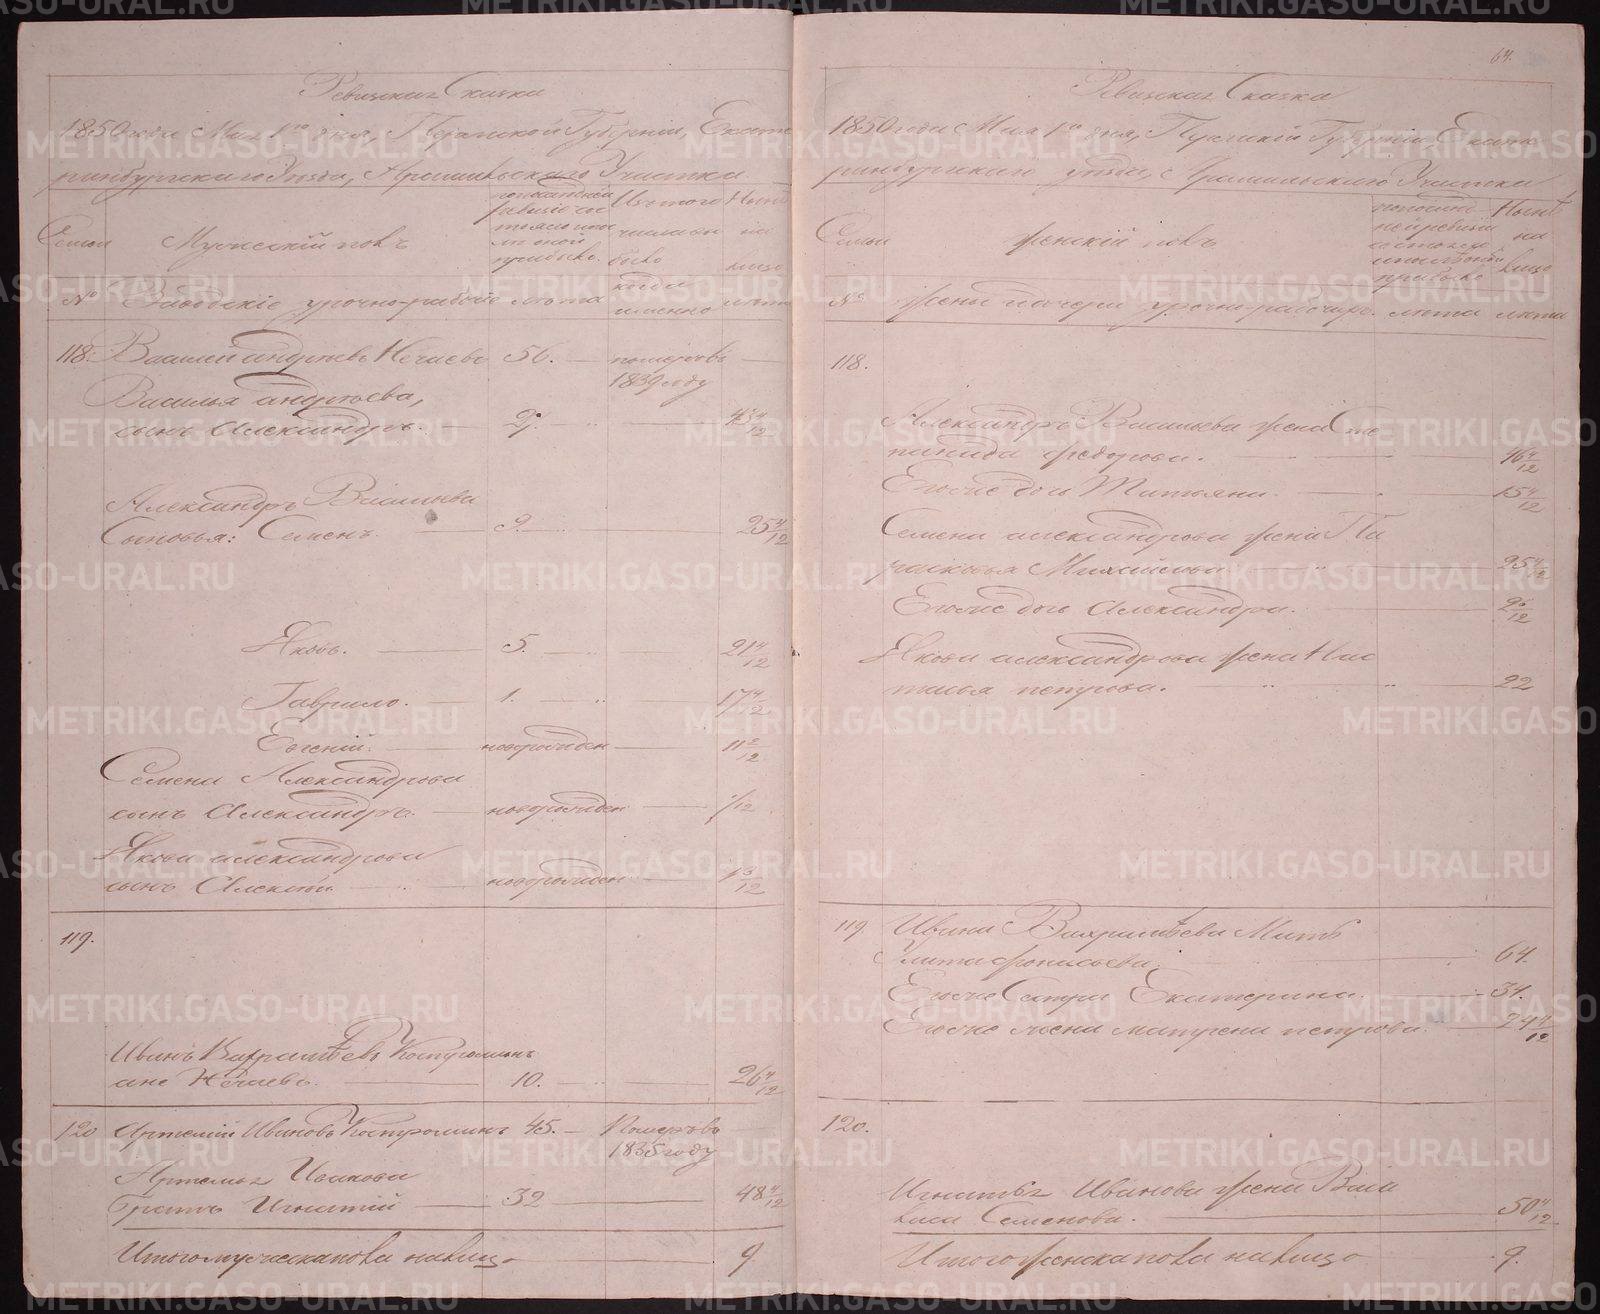 64.
Ревизская Сказка
1850 года Мая 1го дня, Пермской Губерніи, Екате
ринбургскаго Уѣзда, Арамильскаго Участка.
Семьи
Мужескій полъ
по последней
ревизіи со
стояло и по
слѣ оной
прибыло.
Изъ того
числа вы
было
Нынѣ
на
лицо
№
Заводскіе урочно-рабочіе
лѣта
когда
именно
лѣта
118.
Василей Андреевъ Нечаевъ
56.
померъ въ
1839 году
Василья Андреева,
сынъ Александръ.
27.
43 4/12
Александръ Васильева
Сыновья: Семенъ.
9.
25 4/12
Яковъ.
5.
21 4/12
Гаврило.
1.
17 4/12
Евгеній.
новорожден
11 2/12
Семена Александрова
сынъ Александръ.
новорожден
/12
Якова Александрова
сынъ Алексей
новорожден
1 3/12
119.
Иванъ Вахрамѣевъ Костроминъ
ане Нечаевъ.
10.
26 4/12
120
Артемій Ивановъ Костроминъ
45.
Померъ въ
1835 году
Артемья Иванова
братъ Игнатій
32
48 4/12
Итого мужеска пола на лицо
9
Ревизская Сказка
1850 года Мая 1го дня, Пермской Губерніи, Екате
ринбургскаго уѣзда, Арамильскаго Участка
Семьи
Женскій полъ
Нынѣ
на
лицо
№
Жены и дочери урочно-рабочихъ.
лѣта
лѣта
118.
Александръ Васильева жена Сте
панида Федорова.
46 4/12
Егоже дочь Татьяна.
15 4/12
Семена Александрова жена Па
расковья Михайлова
25 4/12
Егоже дочь Александра.
2 6/12
Якова Александрова жена Нас
тасья Петрова.
22
119
Ивана Вахрамѣева Мать
Улита Афонасьева.
64.
Егоже Сестра Екатерина.
31.
Егоже жена Матрена Петрова.
24 4/12
120.
Игнатья Иванова жена Васи
лиса Семенова.
50 4/12
Итого женска пола на лицо
9.
METRIKI.GASO-URAL.RU